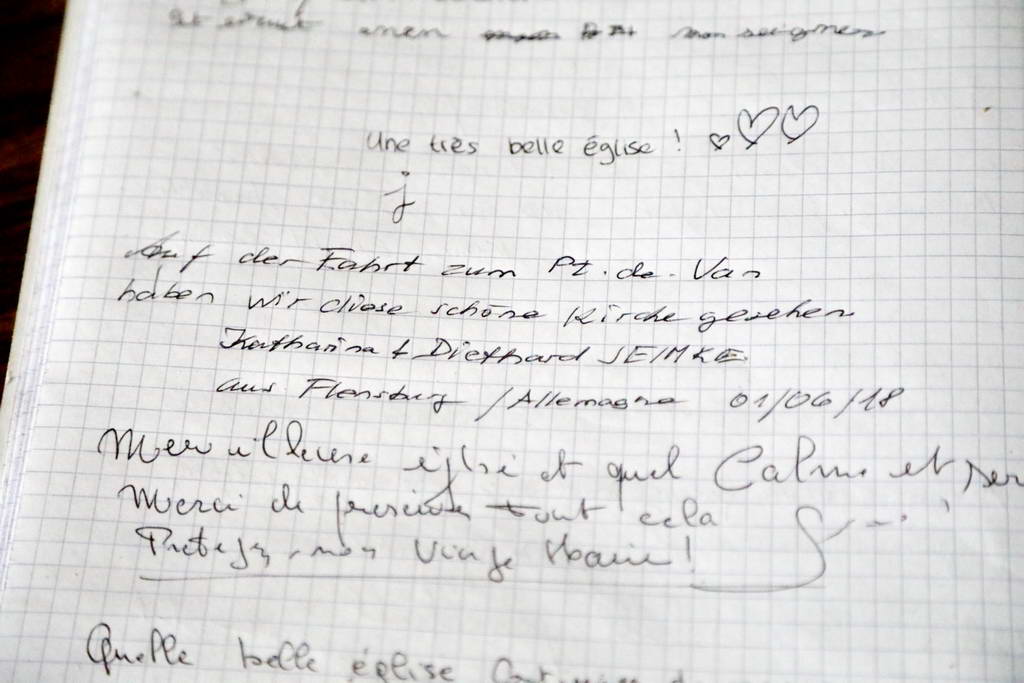 Une très belle église !
j
Auf der Fahrt zum Pt. de. Van
haben wir diese schöne Kirche gesehen
Katharina + Diethard SEIMKE
aus Flensburg / Allemagne 01/06/18
Merveilleuse église et quel Calme et
Merci de tout cela
Protégez-nous Vierge Marie !
Quelle belle église